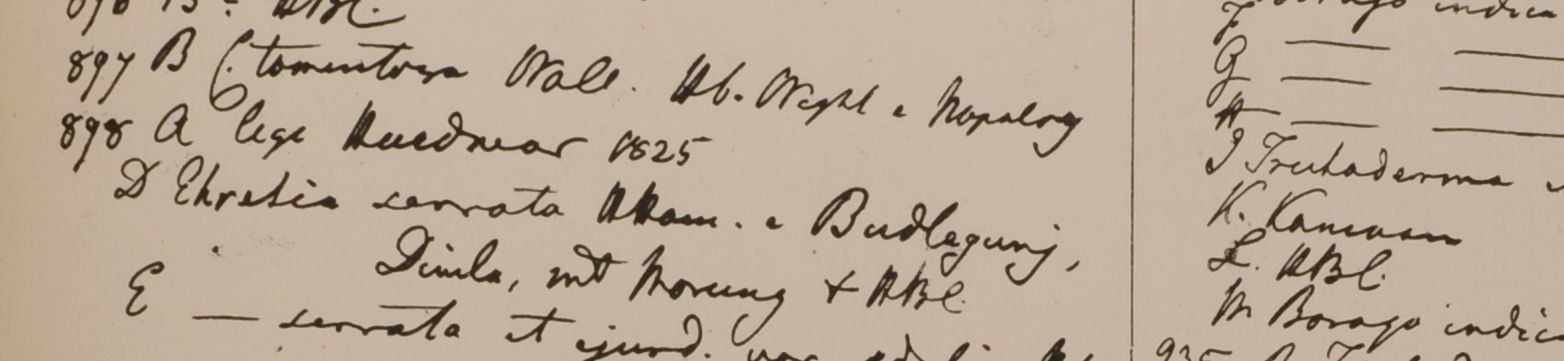 896 B - HBC.
897 B C. tomentosa Wall. Hb. Wight e Napalry
898 A lege Hurdwar 1825
D Ehretia serrata HHam. e Budlegunj,
Dinila, mt Morung + HBC
E — serrata et ejusd. var.
F Borago indica
G — —
H — —
I Trichaderma
K. Kamaon
L. HBC.
M Borago indic
935